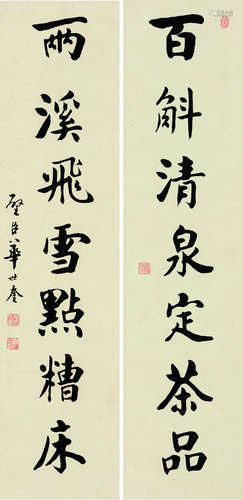 百斛清泉定茶品
兩溪飛雪點糟床
壁臣華世奎